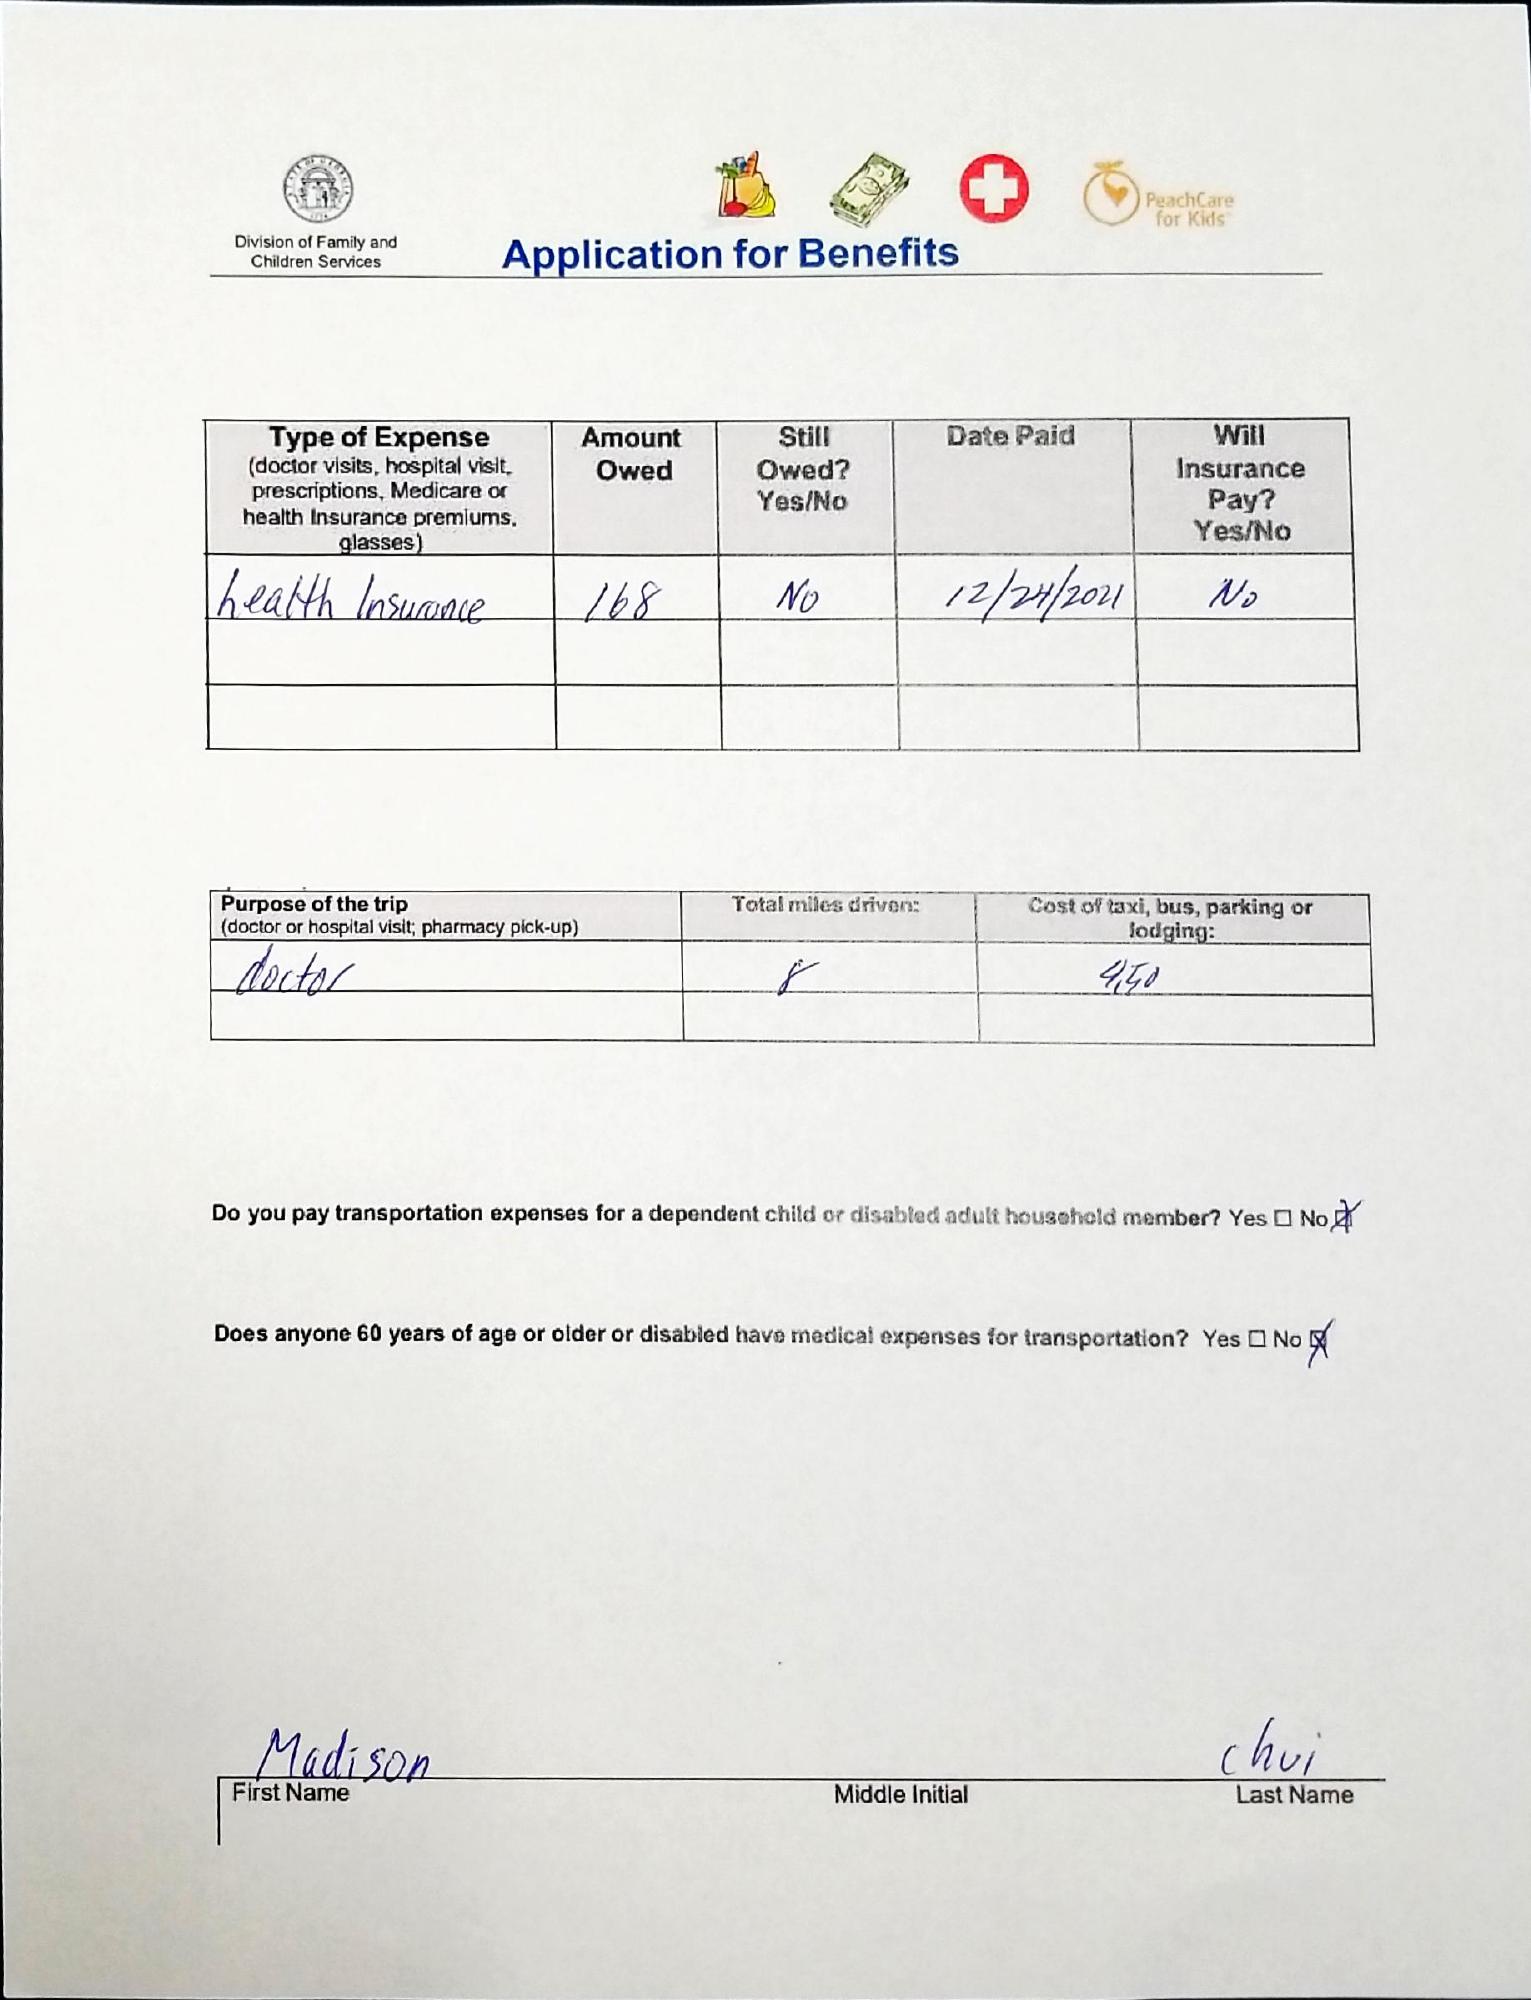 STATE OF GEORGIA
1776
Division of Family and
Children Services
PeachCare
for Kids
Application for Benefits
Type of Expense
(doctor visits, hospital visit,
prescriptions, Medicare or
health Insurance premiums,
glasses)
Amount
Owed
Still
Owed?
Yes/No
Date Paid
Will
Insurance
Pay?
Yes/No
health Insurance 168 No 12/24/2021 No
Purpose of the trip
(doctor or hospital visit; pharmacy pick-up)
Total miles driven:
Cost of taxi, bus, parking or
lodging:
doctor 8 4,50
Do you pay transportation expenses for a dependent child or disabled adult household member? Yes ☐ No ☒
Does anyone 60 years of age or older or disabled have medical expenses for transportation? Yes ☐ No ☒
Madison chui
First Name Middle Initial Last Name